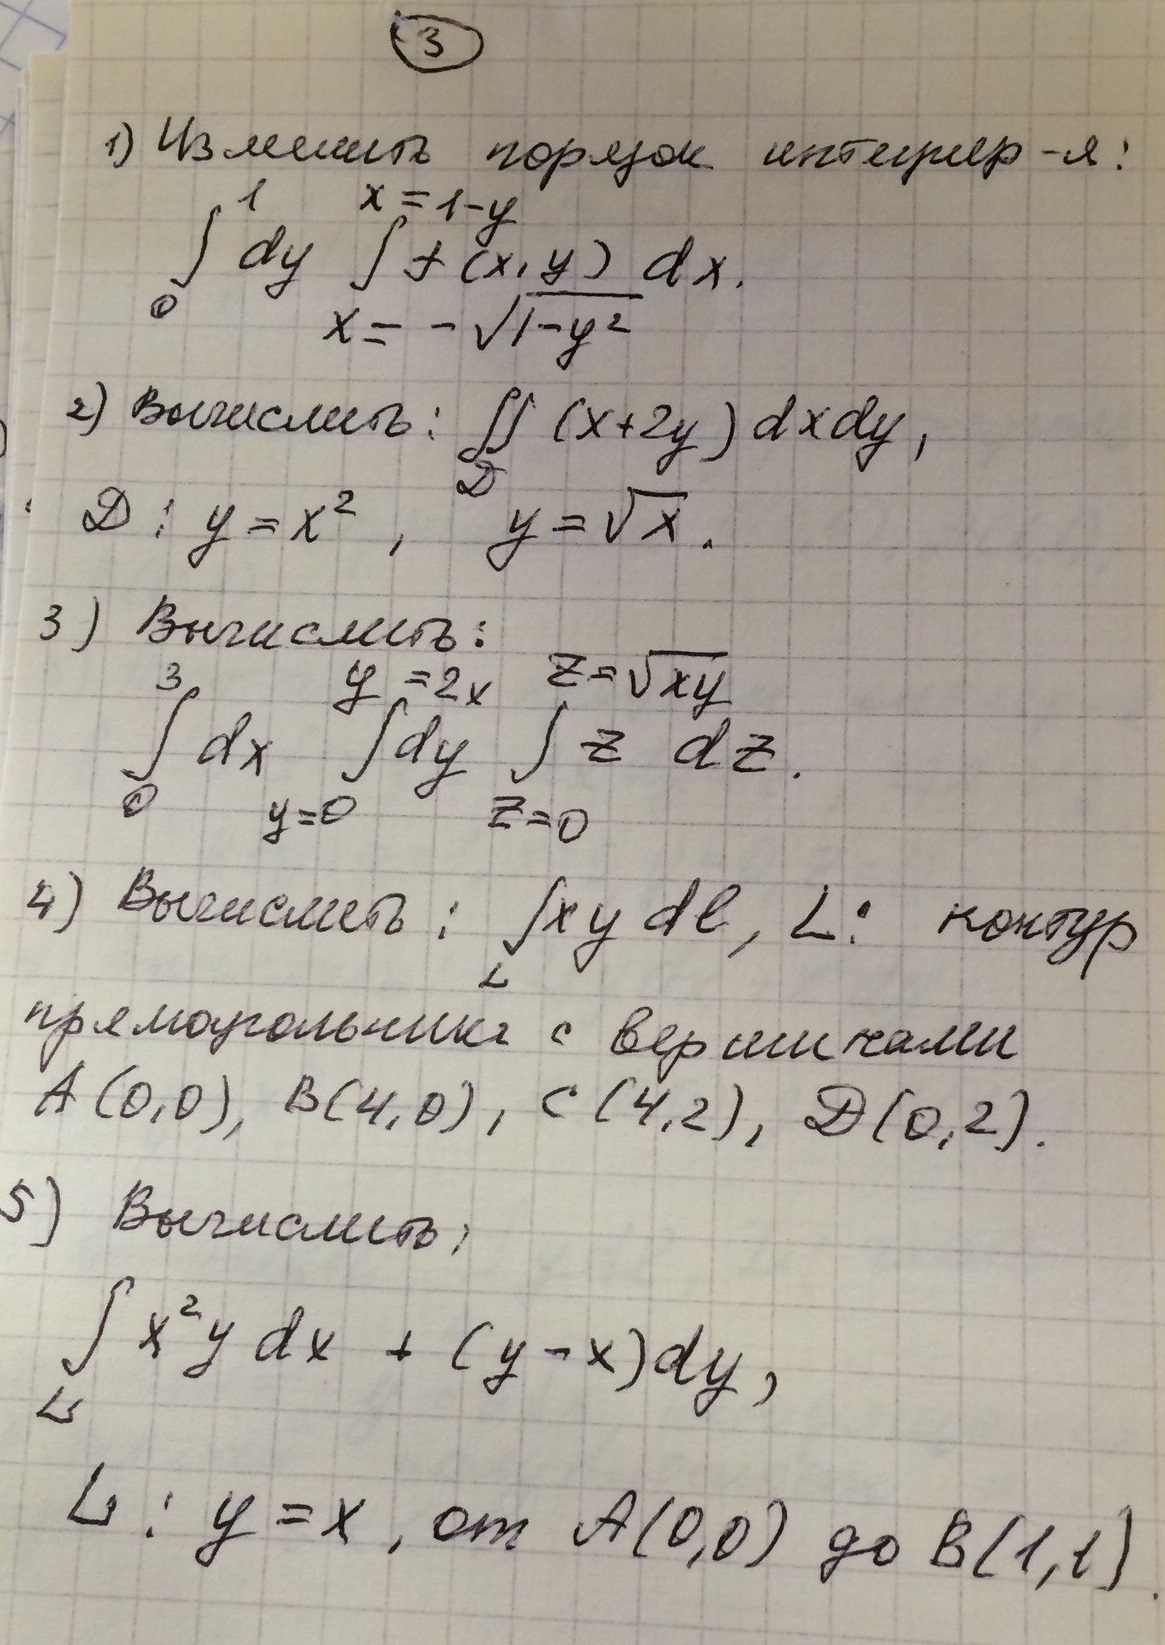 3
1) Изменить порядок интегрир-я:
∫₀¹ dy ∫_{x=-√(1-y²)}^{x=1-y} f(x,y) dx.
2) Вычислить: ∬_D (x+2y) dxdy,
D: y=x², y=√x.
3) Вычислить:
∫₀³ dx ∫_{y=0}^{y=2x} dy ∫_{z=0}^{z=√xy} z dz.
4) Вычислить: ∫_L xy dl, L: контур
прямоугольника с вершинами
A(0,0), B(4,0), C(4,2), D(0,2).
5) Вычислить:
∫_L x²y dx + (y-x)dy,
L: y=x, от A(0,0) до B(1,1).